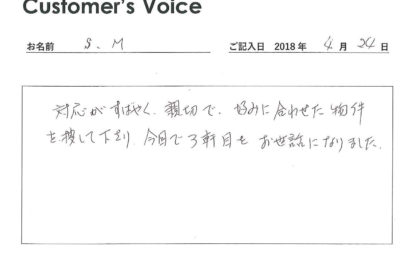 Customer's Voice
お名前 S.M ご記入日 2018年 4月 24日
対応がすばやく、親切で、好みに合わせた物件
を捜して下さり、今回で3軒目をお世話になりました。